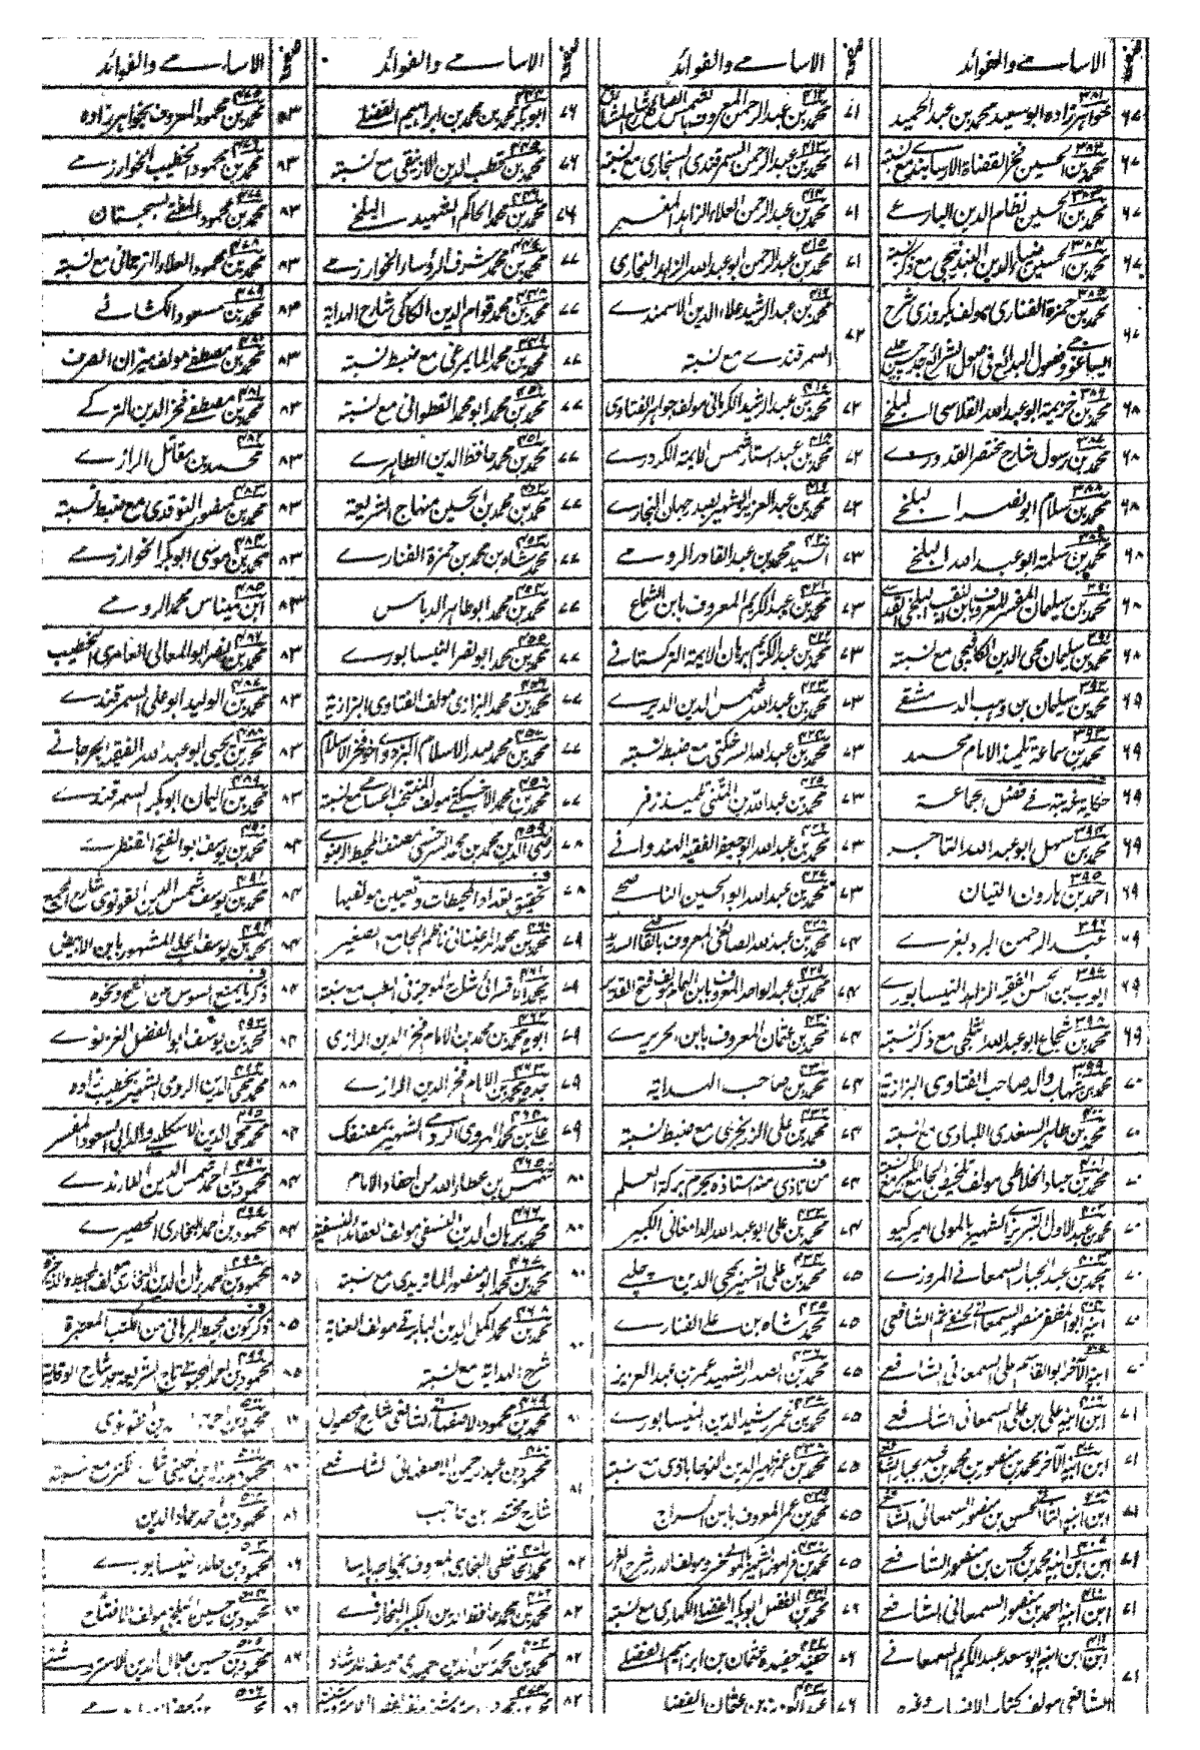 صفحہ الاسامے والفوائد
٦٧ ٣٨١ خواہرزادہ ابوسعید محمد بن عبد الحمید
٦٧ ٣٨٢ محمد بن الحسین فخر القضاة الارسابندے مع نسبتہ
٦٧ ٣٨٣ محمد بن الحسین نظام الدین البارعے
٦٧ ٣٨٤ محمد بن الحسین ضیاء الدین البندنیجی مع ذکر نسبتہ
٦٧ ٣٨٥ محمد بن حمزة الفناری مولف یکروزی شرح
ایساغوجے وفصول البدائع فی اصول الشرائع جد حسن چلپے
٦٨ ٣٨٦ محمد بن خزیمة ابو عبد اللہ القلاسی البلخے
٦٨ ٣٨٧ محمد بن رسول شارح مختصر القدورے
٦٨ ٣٨٨ محمد بن سلام ابو نصر البلخے
٦٨ ٣٨٩ محمد بن سلمة ابو عبد اللہ البلخے
٦٨ ٣٩٠ محمد بن سلیمان المفسر المعروف بابن النقیب البلخی القدسے
٦٨ ٣٩١ محمد بن سلیمان محی الدین الکافیجی مع نسبتہ
٦٩ ٣٩٢ محمد بن سلیمان بن وہب الدمشقے
٦٩ ٣٩٣ محمد بن سماعة تلمیذ الامام محمد
٦٩ حکایة غریبة فے فضل الجماعة
٦٩ ٣٩٤ محمد بن سہل ابو عبد اللہ التاجر
٦٩ ٣٩٥ احمد بن ہارون التبان
٦٩ ٣٩٦ عبد الرحمن البردیغرے
٦٩ ٣٩٧ ایوب بن الحسن الفقیہ الزاہد النیسابورے
٦٩ ٣٩٨ محمد بن شجاع ابو عبد اللہ الثلجی مع ذکر نسبتہ
٧٠ ٣٩٩ محمد بن شہاب والد صاحب الفتاوی البزازیة
٧٠ ٤٠٠ محمد بن طاہر السغدی اللبادی مع نسبتہ
٧٠ ٤٠١ محمد بن عباد الخلاطی مولف تلخیص الجامع الکبیر مع نسبتہ
٧٠ ٤٠٢ محمد بن عبد الاول التبریزے الشہیر بالمولی امیر کیسو
٧٠ ٤٠٣ محمد بن عبد الجبار السمعانے المروزے
٧٠ ٤٠٤ ابنہ ابو المظفر منصور السمعانے الحنفے ثم الشافعی
٧٠ ٤٠٥ ابنہ الآخر ابو القاسم علی السمعانی الشافعے
٧١ ٤٠٦ ابن ابنہ علی بن علی السمعانی الشافعے
٧١ ٤٠٧ ابن ابنہ الآخر محمد بن منصور بن محمد بن عبد الجبار الشافعے
٧١ ٤٠٨ ابن ابنہ الثانے الحسن بن منصور السمعانی الشافعے
٧١ ٤٠٩ ابن ابن ابنہ محمد بن حسن بن منصور الشافعے
٧١ ٤١٠ ابن ابنہ احمد بن منصور السمعانی الشافعے
٧١ ٤١١ ابن ابن ابنہ ابو سعد عبد الکریم السمعانے
الشافعی مولف کتاب الانساب وغیرہ
صفحہ الاسامے والفوائد
٧١ ٤١٢ محمد بن عبد الرحمن المعروف بشمس الصائغ
٧١ ٤١٣ محمد بن عبد الرحمن السمرقندی السنجاری مع نسبتہ
٧١ ٤١٤ محمد بن عبد الرحمن العلاء الزاہد المفسر
٧١ ٤١٥ محمد بن عبد الرحمن ابو عبد اللہ الزاہد البخاری
٧٢ ٤١٦ محمد بن عبد الرشید علاء الدین الاسمندے
السمرقندے مع نسبتہ
٧٢ ٤١٧ محمد بن عبد الرشید الکرمانی مولف جواہر الفتاوی
٧٢ ٤١٨ محمد بن عبد الستار شمس الایمة الکردرے
٧٣ ٤١٩ محمد بن عبد العزیز الشہیر بصدر جہان البخارے
٧٣ ٤٢٠ السید محمد بن عبد القادر الرومے
٧٣ ٤٢١ محمد بن عبد الکریم المعروف بابن الشماع
٧٣ ٤٢٢ محمد بن عبد الکریم برہان الایمة الترکستانے
٧٣ ٤٢٣ محمد بن عبد اللہ شمس الدین الدیرے
٧٣ ٤٢٤ محمد بن عبد اللہ السرخکتی مع ضبط نسبتہ
٧٣ ٤٢٥ محمد بن عبد اللہ بن المثنی تلمیذ زفر
٧٣ ٤٢٦ محمد بن عبد اللہ ابو جعفر الفقیہ الہندوانے
٧٣ ٤٢٧ محمد بن عبد اللہ ابو الحسین الناصحے
٧٤ ٤٢٨ محمد بن عبد اللہ الصائغی المعروف بالقاضے السدید
٧٤ ٤٢٩ محمد بن عبد الواحد المعروف بابن الہمام مولف فتح القدیر
٧٤ ٤٣٠ محمد بن عثمان المعروف بابن الحریرے
٧٤ ٤٣١ محمد بن صاحب الہدایة
٧٤ ٤٣٢ محمد بن علی الزرنجری مع ضبط نسبتہ
٧٤ من تاذی منہ استاذہ یحرم برکة العلم
٧٤ ٤٣٣ محمد بن علی ابو عبد اللہ الدامغانی الکبیر
٧٥ ٤٣٤ محمد بن علی الشہیر بمحی الدین چلپے
٧٥ ٤٣٥ محمد شاہ بن علی الفنارے
٧٥ ٤٣٦ محمد بن الصدر الشہید عمر بن عبد العزیز
٧٥ ٤٣٧ محمد بن عمر رشید الدین النیسابورے
٧٥ ٤٣٨ محمد بن عمر ظہیر الدین النوجاباذی مع نسبتہ
٧٥ ٤٣٩ محمد بن عمر المعروف بابن السراج
٧٥ ٤٤٠ محمد بن فراموز الشہیر بالمولی خسرو مولف الدرر شرح الغرر
٧٦ ٤٤١ محمد بن الفضل ابو بکر الفضلی الکماری مع نسبتہ
٧٦ ٤٤٢ حفید حفیدہ عثمان بن ابراہیم الفضلے
٧٦ ٤٤٣ عبد العزیز بن عثمان الفضلے
صفحہ الاسامے والفوائد
٧٦ ٤٤٤ ابو بکر محمد بن محمد بن ابراہیم الفضلے
٧٦ ٤٤٥ محمد بن قطب الدین الازنیقی مع نسبتہ
٧٦ ٤٤٦ محمد بن محمد الحاکم الشہید البلخے
٧٧ ٤٤٧ محمد بن محمد شرف الرؤساء الخوارزمے
٧٧ ٤٤٨ محمد بن محمد قوام الدین الکاکی شارح الہدایة
٧٧ ٤٤٩ محمد بن محمد المایمرغی مع ضبط نسبتہ
٧٧ ٤٥٠ محمد بن محمد ابو محمد القطوانی مع نسبتہ
٧٧ ٤٥١ محمد بن محمد حافظ الدین الطاہرے
٧٧ ٤٥٢ محمد بن محمد بن الحسین منہاج الشریعة
٧٧ ٤٥٣ محمد شاہ بن محمد بن حمزة الفنارے
٧٧ ٤٥٤ محمد بن محمد ابو طاہر الدباس
٧٧ ٤٥٥ محمد بن محمد ابو نصر النیسابورے
٧٧ ٤٥٦ محمد بن محمد البزازی مولف الفتاوی البزازیة
٧٧ ٤٥٧ محمد بن محمد صدر الاسلام البزدوے اخو فخر الاسلام
٧٧ ٤٥٨ محمد بن محمد الاخسیکثے مولف المنتخب الحسامے مع نسبتہ
٧٨ ٤٥٩ رضی الدین محمد بن محمد السرخسی مصنف المحیط الرضوے
٧٨ تحقیق تعداد المحیطات وتعیین مولفیہا
٧٩ ٤٦٠ محمد بن محمد المرغینانی ناظم الجامع الصغیر
٧٩ ٤٦١ محمد الاقسرائی شارح الموجز فی الطب مع نسبتہ
٧٩ ٤٦٢ ابوہ محمد بن محمد بن الامام فخر الدین الرازی
٧٩ ٤٦٣ جدہ محمد بن الامام فخر الدین الرازے
٧٩ ٤٦٤ علی بن محمد الہروی الرومے الشہیر بمصنفک
٨٠ ٤٦٥ شمس بن عطاء اللہ من احفاد الامام
٨٠ ٤٦٦ محمد برہان الدین النسفی مولف العقائد النسفیة
٨٠ ٤٦٧ محمد بن محمد ابو منصور الماتریدی مع نسبتہ
٨٠ ٤٦٨ محمد بن محمد اکمل الدین البابرتے مولف العنایة
شرح الہدایة مع نسبتہ
٨١ ٤٦٩ محمد بن محمود الاصفہانے الشافعی شارح محصول
٨١ ٤٧٠ محمود بن عبد الرحمن الاصفہانی الشافعے
شارح مختصر بن حاجب
٨٢ ٤٧١ محمد الحافظی البخاری المعروف بخواجہ پارسا
٨٢ ٤٧٢ محمد بن محمد حافظ الدین الکبیر البخارے
٨٢ ٤٧٣
٨٢ ٤٧٤
صفحہ الاسامے والفوائد
٨٣ ٤٧٥ محمد بن محمود المعروف بخواہرزادہ
٨٣ ٤٧٦ محمد بن محمود الخطیب الخوارزمے
٨٣ ٤٧٧ محمد بن محمود المفتے بسجستان
٨٣ ٤٧٨ محمد بن محمود العلاء الترجمانی مع نسبتہ
٨٣ ٤٧٩ محمد بن مسعود الکشانے
٨٣ ٤٨٠ محمد بن مصطفے مولف میزان الصرف
٨٣ ٤٨١ محمد بن مصطفے فخر الدین الترکے
٨٣ ٤٨٢ محمد بن مقاتل الرازے
٨٣ ٤٨٣ محمد بن منصور النوقدی مع ضبط نسبتہ
٨٣ ٤٨٤ محمد بن موسی ابو بکر الخوارزمے
٨٣ ٤٨٥ ابن میناس محمد الرومے
٨٣ ٤٨٦ محمد بن نصر ابو المعالی العامری الخطیب
٨٣ ٤٨٧ محمد بن الولید ابو علی السمرقندے
٨٣ ٤٨٨ محمد بن یحیی ابو عبد اللہ الفقیہ الجرجانے
٨٣ ٤٨٩ محمد بن الیمان ابو بکر السمرقندے
٨٣ ٤٩٠ محمد بن یوسف ابو الفتح القنطرے
٨٤ ٤٩١ محمد بن یوسف شمس الدین القونوی شارح المجمع
٨٤ ٤٩٢ محمد بن یوسف الحلبی المشہور بابن الابیض
٨٤ ذکر ما یمنع السوس من القمح ونحوہ
٨٤ ٤٩٣ محمد بن یوسف ابو الفضل الغزنوے
٨٨ ٤٩٤ محمد محی الدین الرومی الشہیر بخطیب زادہ
٨٤ ٤٩٥ محمد محی الدین الاسکلیبے والد ابی السعود المفسر
٨٤ ٤٩٦ محمود بن احمد شمس الدین الفارندے
٨٤ ٤٩٧ محمود بن احمد البخاری الحصیرے
٨٥ ٤٩٨ محمود بن محمد برہان الدین البخاری مولف المحیط والذخیرة
٨٥ ذکر کون المحیط البرہانی من الکتب المعتبرة
٨٥ ٤٩٩ محمود بن احمد المحبوبے تاج الشریعہ جد شارح الوقایة
٥٠٠ محمود بن احمد القونوی
٥٠١
٥٠٢ محمود بن احمد عماد الدین
٨٦ ٥٠٣ محمود بن عابد نیسابورے
٥٠٤ محمود بن حسین البلخے مولف الافتتاح
٨٦ ٥٠٥ محمود بن حسین جلال الدین الاستروشنے
٥٠٦